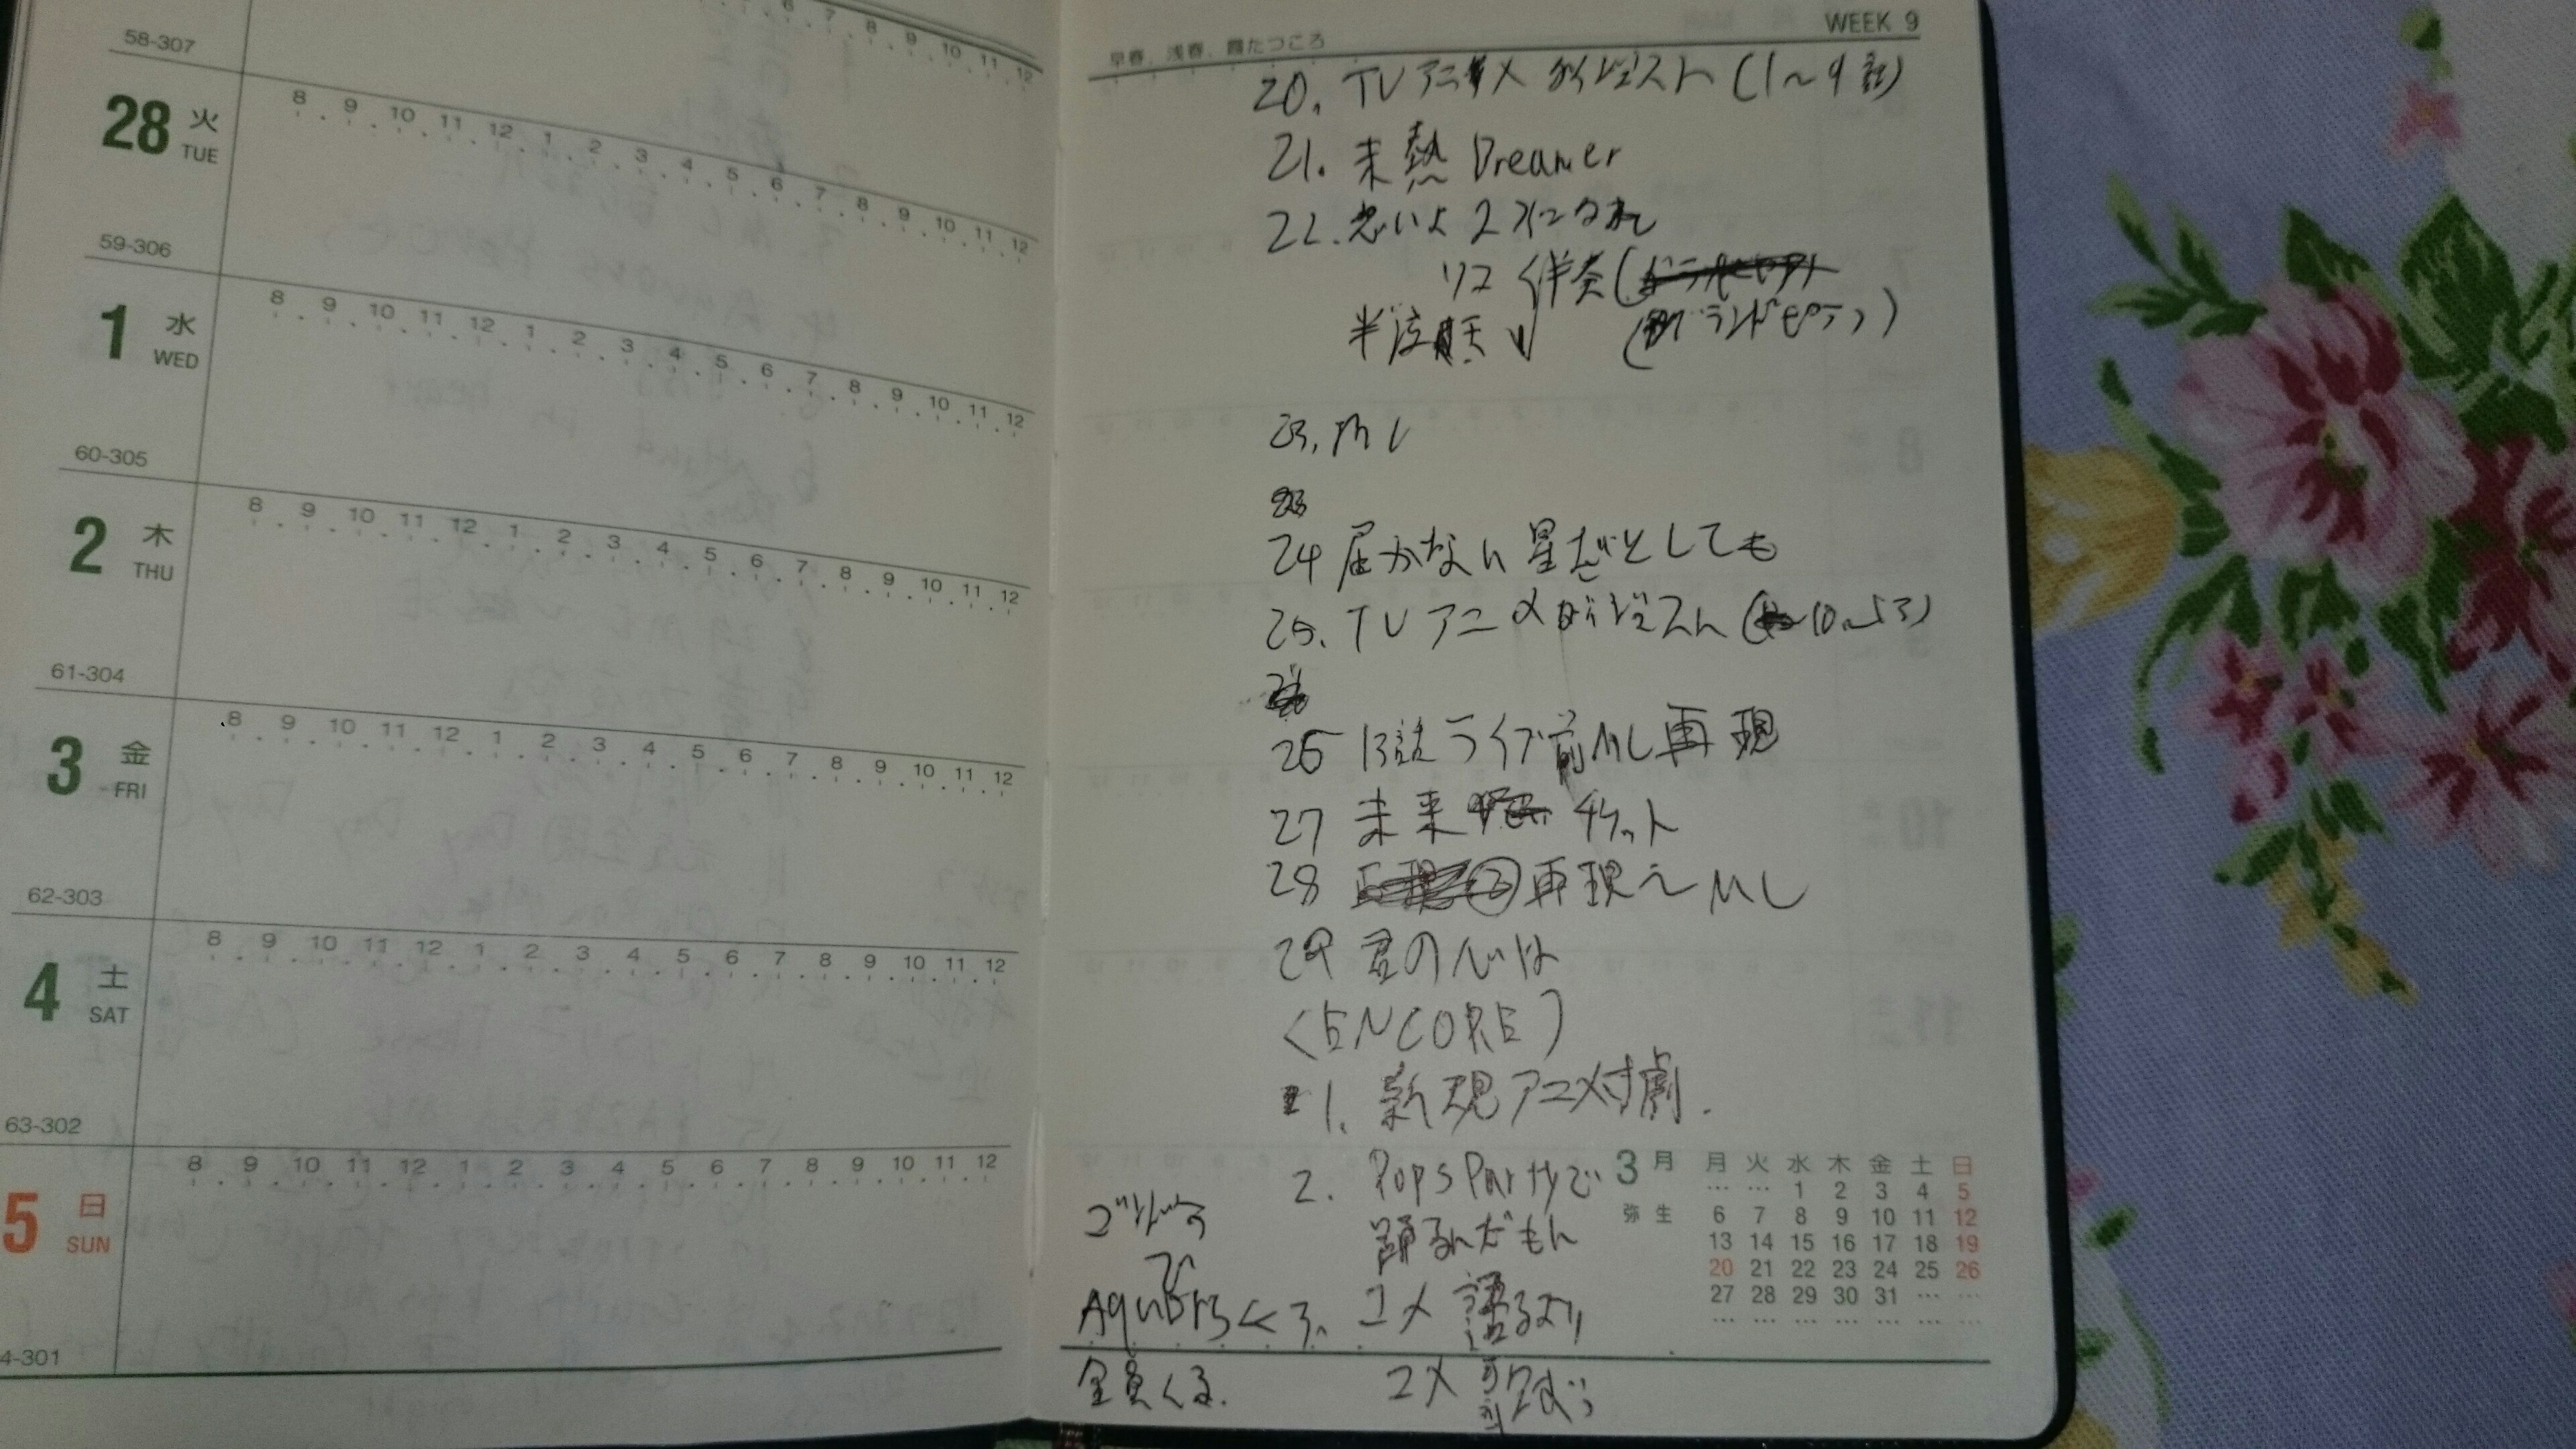 58-307
6 7 8 9 10 11 12
28 火 TUE
8 9 10 11 12 1 2 3 4 5 6 7 8 9 10 11 12
59-306
1 水 WED
8 9 10 11 12 1 2 3 4 5 6 7 8 9 10 11 12
60-305
2 木 THU
8 9 10 11 12 1 2 3 4 5 6 7 8 9 10 11 12
61-304
3 金 FRI
8 9 10 11 12 1 2 3 4 5 6 7 8 9 10 11 12
62-303
4 土 SAT
8 9 10 11 12 1 2 3 4 5 6 7 8 9 10 11 12
63-302
5 日 SUN
8 9 10 11 12 1 2 3 4 5 6 7 8 9 10 11 12
4-301
早春、浅春、霞たつころ
WEEK 9
20. TVアニメ ダイジェスト (1～9話)
21. 未熟 Dreamer
22. 思いよひとつになれ
リコ 伴奏(
半泣顔
23. MC
24 届かない星だとしても
25. TVアニメダイジェスト (10～13)
26 13話ライブ前MC再現
27 未来チケット
28 再現 MC
29 君の心は
<ENCORE>
1. 新規アニメ寸劇.
2. Pops Partyで
踊るんだもん
Aqours << 3. ユメ語るより
全員くる. ユメ歌おう
3 月
弥生
月 火 水 木 金 土 日
… … 1 2 3 4 5
6 7 8 9 10 11 12
13 14 15 16 17 18 19
20 21 22 23 24 25 26
27 28 29 30 31 … …
… … … … … … …